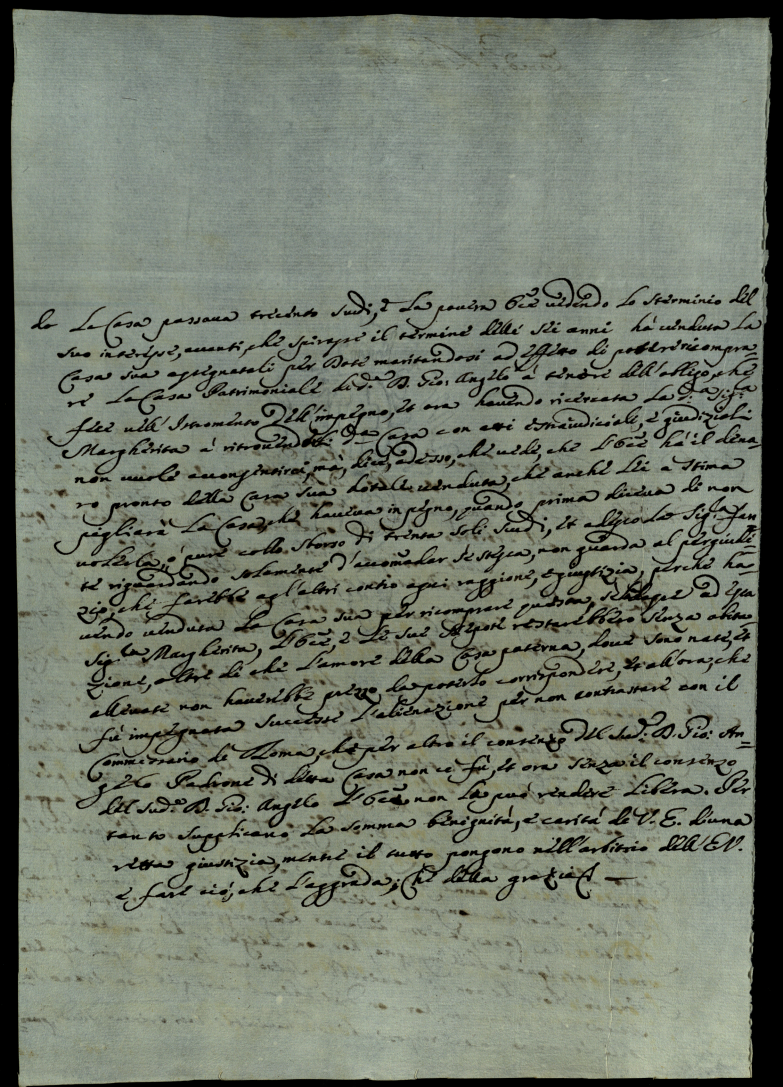 do La Casa passava trecento scudi, e la povera Or̃e vedendo lo sterminio del
suo interesse, avanti, che spirasse il termine delli sei anni hà venduta la
Casa sua assegnatali per Dote maritandosi ad effetto di potere ricompra=
re La Casa Patrimoniale di d.º D. Gio: Angelo à tenore dell'obligo, che
fece nell'Istromento dell'impegno, et ora havendo ricercata La d.ª Sig.ª
Margherita à ritrovendersi d.ª Casa con atti estragiudiciali, e giudiziali
non vuole acconsentirci, mà, dice, adesso, che vede, che l'Or̃e hà il dena=
ro pronto della Casa sua dotale venduta, che anche Lei a stima
pigliarà La Casa, che haveva in pegno, quando prima diceva di non
volerla, ò pure collo sborso di trenta soli scudi, et adesso La Sig.ª
te riguardando solamente d'accomodar se stessa, non guarda al pregiudi=
zio, che farebbe agl'altri contro ogni raggione, e giustizia, perche ha=
vendo venduta La Casa sua per ricomprare questa, ad essa
Sig.ra Margherita, L'Or̃e, e Le sue Nepoti restarebbero senza abita
zione, oltre di che L'amore della Casa paterna, dove sono nate, et
allevate non haverebbe prezzo da poterlo corrispondere, et all'ora, che
fù impegnata successe L'alienazione per non contrastare con il
Commissario di Roma, che per altro il consenzo del Sud.º D. Gio: An=
gelo Padrone di detta Casa non ce fù, et ora senza il consenzo
del Sud.º D. Gio: Angelo L'Or̃e non La può rendere Libera. Per
tanto supplicano La somma benignità, e carità di V. E. d'una
retta giustizia, mentre il tutto pongono nell'arbitrio dell'E V.
e fare ciò, che L'aggrada; Che della grazia &